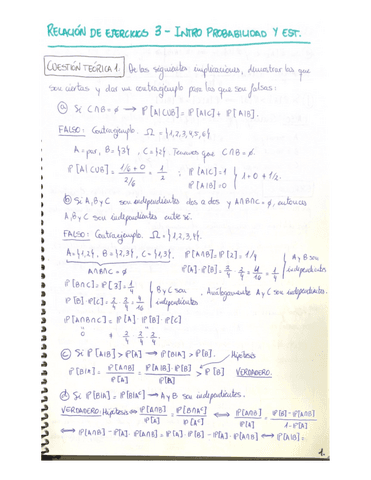 RELACIÓN DE EJERCICIOS 3 - INTRO PROBABILIDAD Y EST.
CUESTIÓN TEÓRICA 1. De las siguientes implicaciones, demostrar las que
son ciertas y dar un contraejemplo para las que son falsas:
a) Si C∩B = ∅ → P[A|C∪B] = P[A|C] + P[A|B].
FALSO: Contraejemplo. Ω = {1,2,3,4,5,6}
A = par, B = {3}, C = {2}. Tenemos que C∩B = ∅.
P[A|C∪B] = (1/6 + 0)/(2/6) = 1/2 ; P[A|C] = 1
P[A|B] = 0 } 1 + 0 ≠ 1/2.
b) Si A, B y C son independientes dos a dos y A∩B∩C = ∅, entonces
A, B y C son independientes entre sí.
FALSO: Contraejemplo. Ω = {1,2,3,4}.
A = {1,2}, B = {2,3}, C = {1,3}. P[A∩B] = P[2] = 1/4
A∩B∩C = ∅ P[A]·P[B] = 2/4 · 2/4 = 4/16 = 1/4 } A y B son independientes
P[B∩C] = P[3] = 1/4
P[B]·P[C] = 2/4 · 2/4 = 4/16 } B y C son independientes. Análogamente A y C son independientes.
P[A∩B∩C] = P[A]·P[B]·P[C]
0 ≠ 2/4 · 2/4 · 2/4
c) Si P[A|B] > P[A] → P[B|A] > P[B]. Hipótesis
P[B|A] = P[A∩B]/P[A] = P[A|B]·P[B]/P[A] > P[B] VERDADERO.
d) Si P[B|A] = P[B|Aᶜ] → A y B son independientes.
VERDADERO: Hipótesis ⟺ P[A∩B]/P[A] = P[B∩Aᶜ]/P[Aᶜ] ⟺ P[A∩B]/P[A] = (P[B] - P[A∩B])/(1 - P[A])
⟺ P[A∩B] - P[A]·P[A∩B] = P[A]·P[B] - P[A]·P[A∩B] ⟺ P[A|B] =
1.